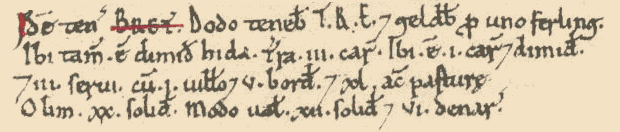 Idē ten̄ BREt. Dodo teneb̄ T.R.E. ⁊ geldb̄ ꝓ uno ferling.
Ibi tam̄.ē dimid̄ hida. t̄ra.iii.car̄. Ibi.ē.i.car̄ ⁊ dimid̄.
⁊ iii. serui. cū.i.uill̄o ⁊ v.bord̄. ⁊ xl. ac̄ pasturę
Olim.xx.solid̄. Modo ual̄.xii.solid̄ ⁊ vi.denar̄.